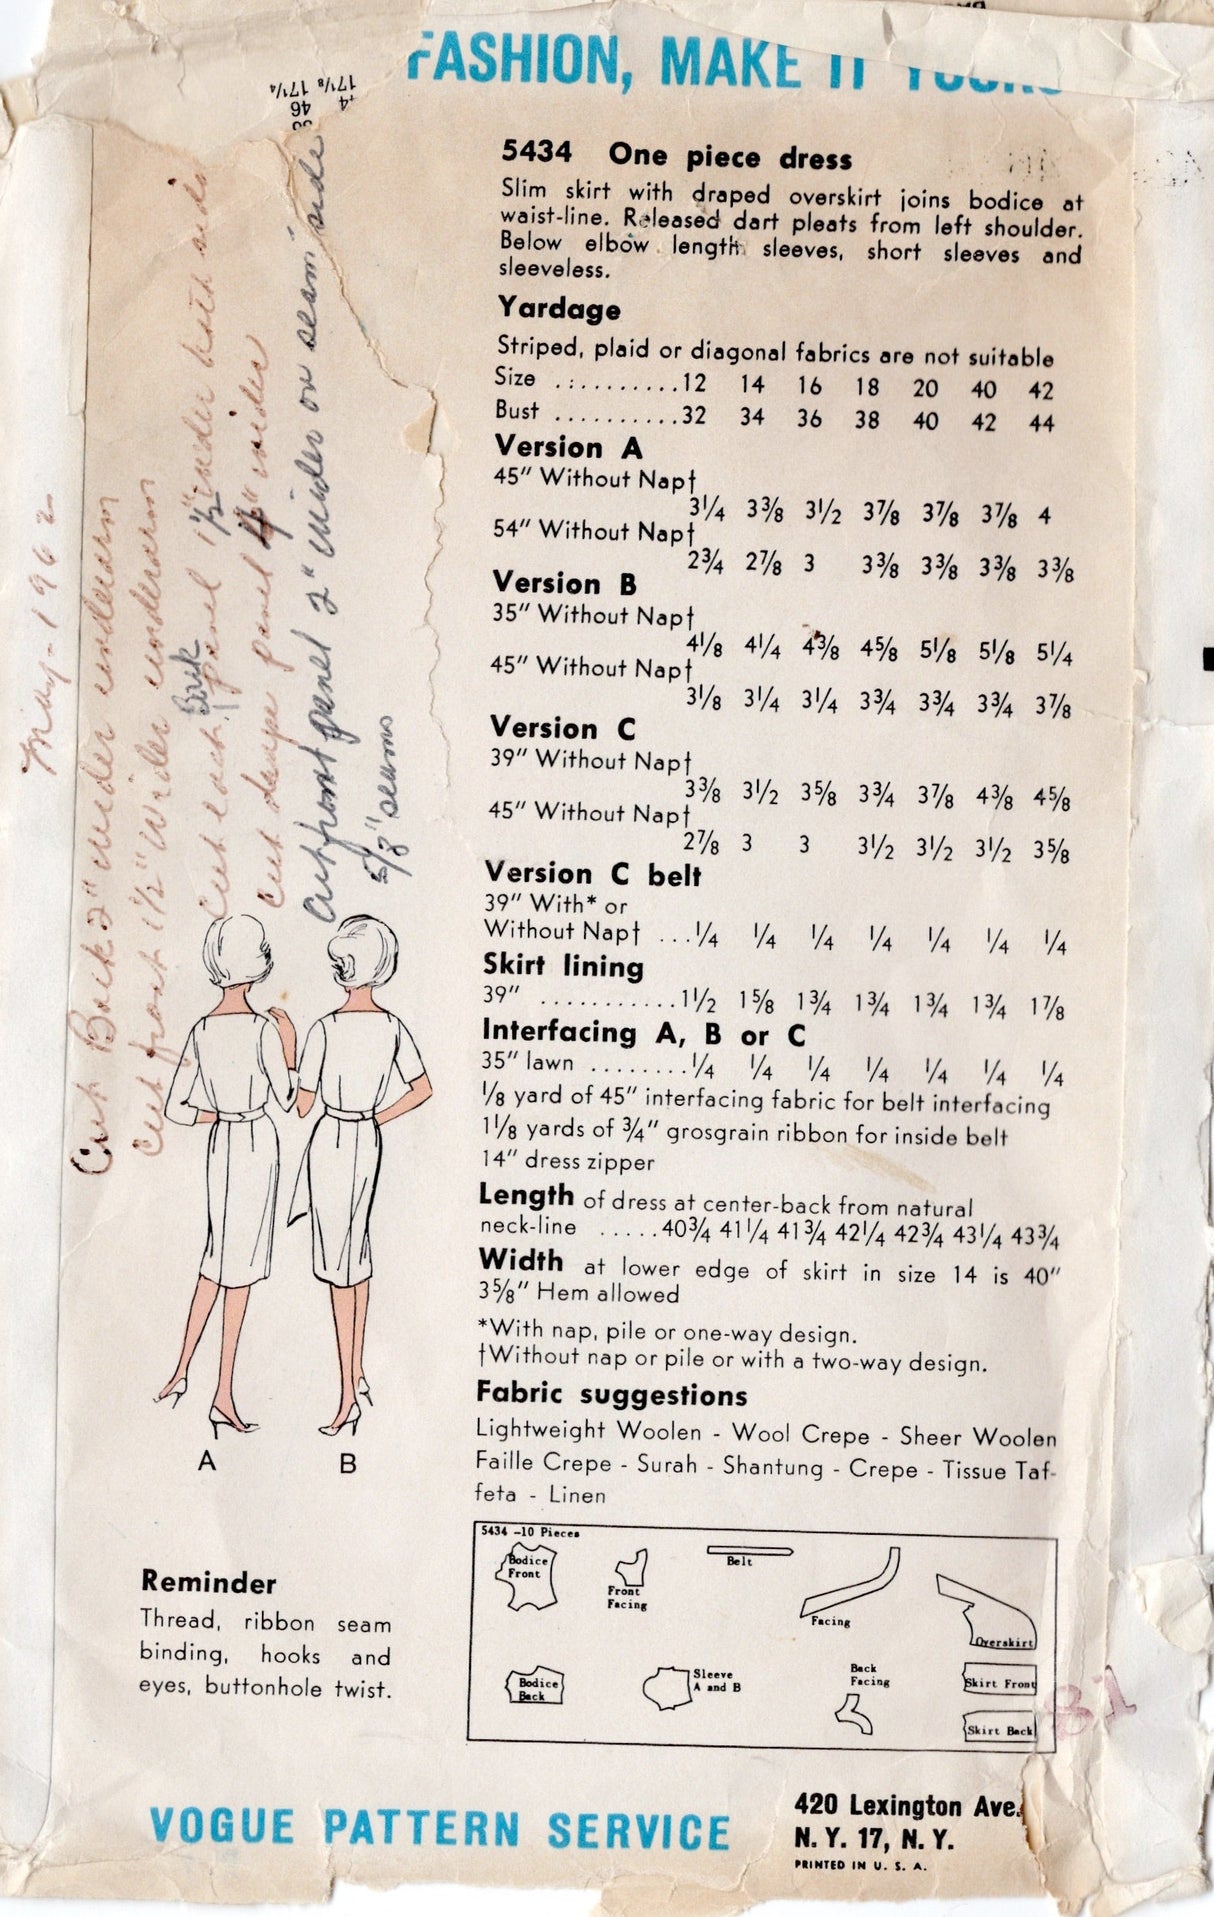 FASHION, MAKE IT YOURS
17⅛ 17¼
46
5434 One piece dress
Slim skirt with draped overskirt joins bodice at
waist-line. Released dart pleats from left shoulder.
Below elbow length sleeves, short sleeves and
sleeveless.
Yardage
Striped, plaid or diagonal fabrics are not suitable
Size ..........12 14 16 18 20 40 42
Bust ...........32 34 36 38 40 42 44
Version A
45" Without Nap†
3¼ 3⅜ 3½ 3⅞ 3⅞ 3⅞ 4
54" Without Nap†
2¾ 2⅞ 3 3⅜ 3⅜ 3⅜ 3⅜
Version B
35" Without Nap†
4⅛ 4¼ 4⅜ 4⅝ 5⅛ 5⅛ 5¼
45" Without Nap†
3⅛ 3¼ 3¼ 3¾ 3¾ 3¾ 3⅞
Version C
39" Without Nap†
3⅜ 3½ 3⅝ 3¾ 3⅞ 4⅜ 4⅝
45" Without Nap†
2⅞ 3 3 3½ 3½ 3½ 3⅝
Version C belt
39" With* or
Without Nap† ...¼ ¼ ¼ ¼ ¼ ¼ ¼
Skirt lining
39" ............1½ 1⅝ 1¾ 1¾ 1¾ 1¾ 1⅞
Interfacing A, B or C
35" lawn ........¼ ¼ ¼ ¼ ¼ ¼ ¼
⅛ yard of 45" interfacing fabric for belt interfacing
1⅛ yards of ¾" grosgrain ribbon for inside belt
14" dress zipper
Length of dress at center-back from natural
neck-line .....40¾ 41¼ 41¾ 42¼ 42¾ 43¼ 43¾
Width at lower edge of skirt in size 14 is 40"
3⅝" Hem allowed
*With nap, pile or one-way design.
†Without nap or pile or with a two-way design.
Fabric suggestions
Lightweight Woolen - Wool Crepe - Sheer Woolen
Faille Crepe - Surah - Shantung - Crepe - Tissue Taf-
feta - Linen
May-1962
Cut Back 2" wider underarm
Cut front 1½" wider underarm
Cut each Back panel 1½" wider both side
Cut drape panel 4" wider
Cut front panel 2" wider on seam side
5/8" seams
A
B
Reminder
Thread, ribbon seam
binding, hooks and
eyes, buttonhole twist.
5434 -10 Pieces
Bodice
Front
Front
Facing
Belt
Facing
Overskirt
Bodice
Back
Sleeve
A and B
Back
Facing
Skirt Front
Skirt Back
81
VOGUE PATTERN SERVICE
420 Lexington Ave.
N. Y. 17, N. Y.
PRINTED IN U. S. A.